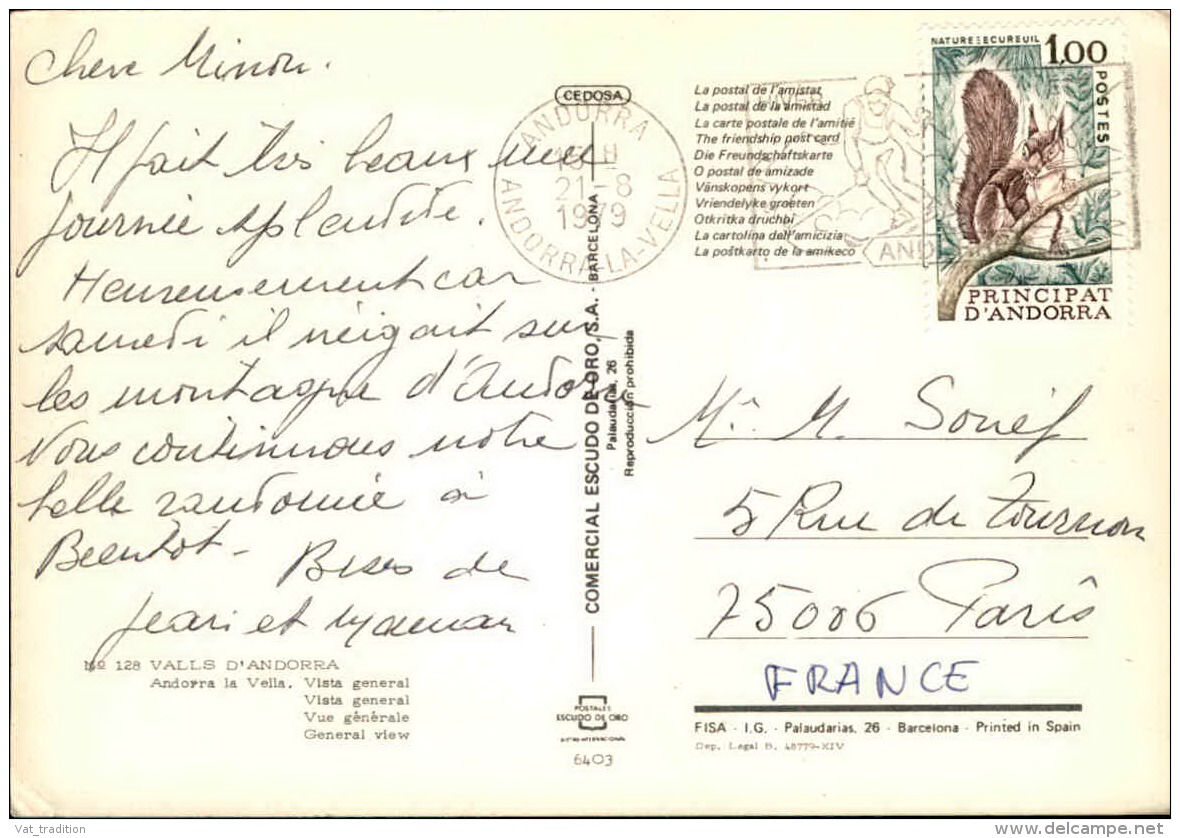 Chere Minou.
Il fait très beaux une
journée splendide.
Heureusement car
samedi il neigait sur
les montagne d'Andorre
Nous continuons notre
belle randonnée à
Bientot - Bises de
Jean et Maman
Nº 128 VALLS D'ANDORRA
Andorra la Vella. Vista general
Vista general
Vue générale
General view
CEDOSA
COMERCIAL ESCUDO DE ORO, S.A. - BARCELONA
Palaudarias, 26
Reproducción prohibida
POSTALES
ESCUDO DE ORO
6403
ANDORRA
21-8
1979
ANDORRA-LA-VELLA
La postal de l'amistat
La postal de la amistad
La carte postale de l'amitié
The friendship post card
Die Freundschaftskarte
O postal de amizade
Vänskopens vykort
Vriendelyke groeten
Otkritka druchbi
La cartolina dell'amicizia
La poŝtkarto de la amikeco
NATURE ECUREUIL
1,00
POSTES
PRINCIPAT
D'ANDORRA
M. Souéf
5 Rue de Tournon
75006 Paris
FRANCE
FISA - I.G. - Palaudarias, 26 - Barcelona - Printed in Spain
Dep. Legal B. 48779-XIV
Vat_tradition
delcampe.net